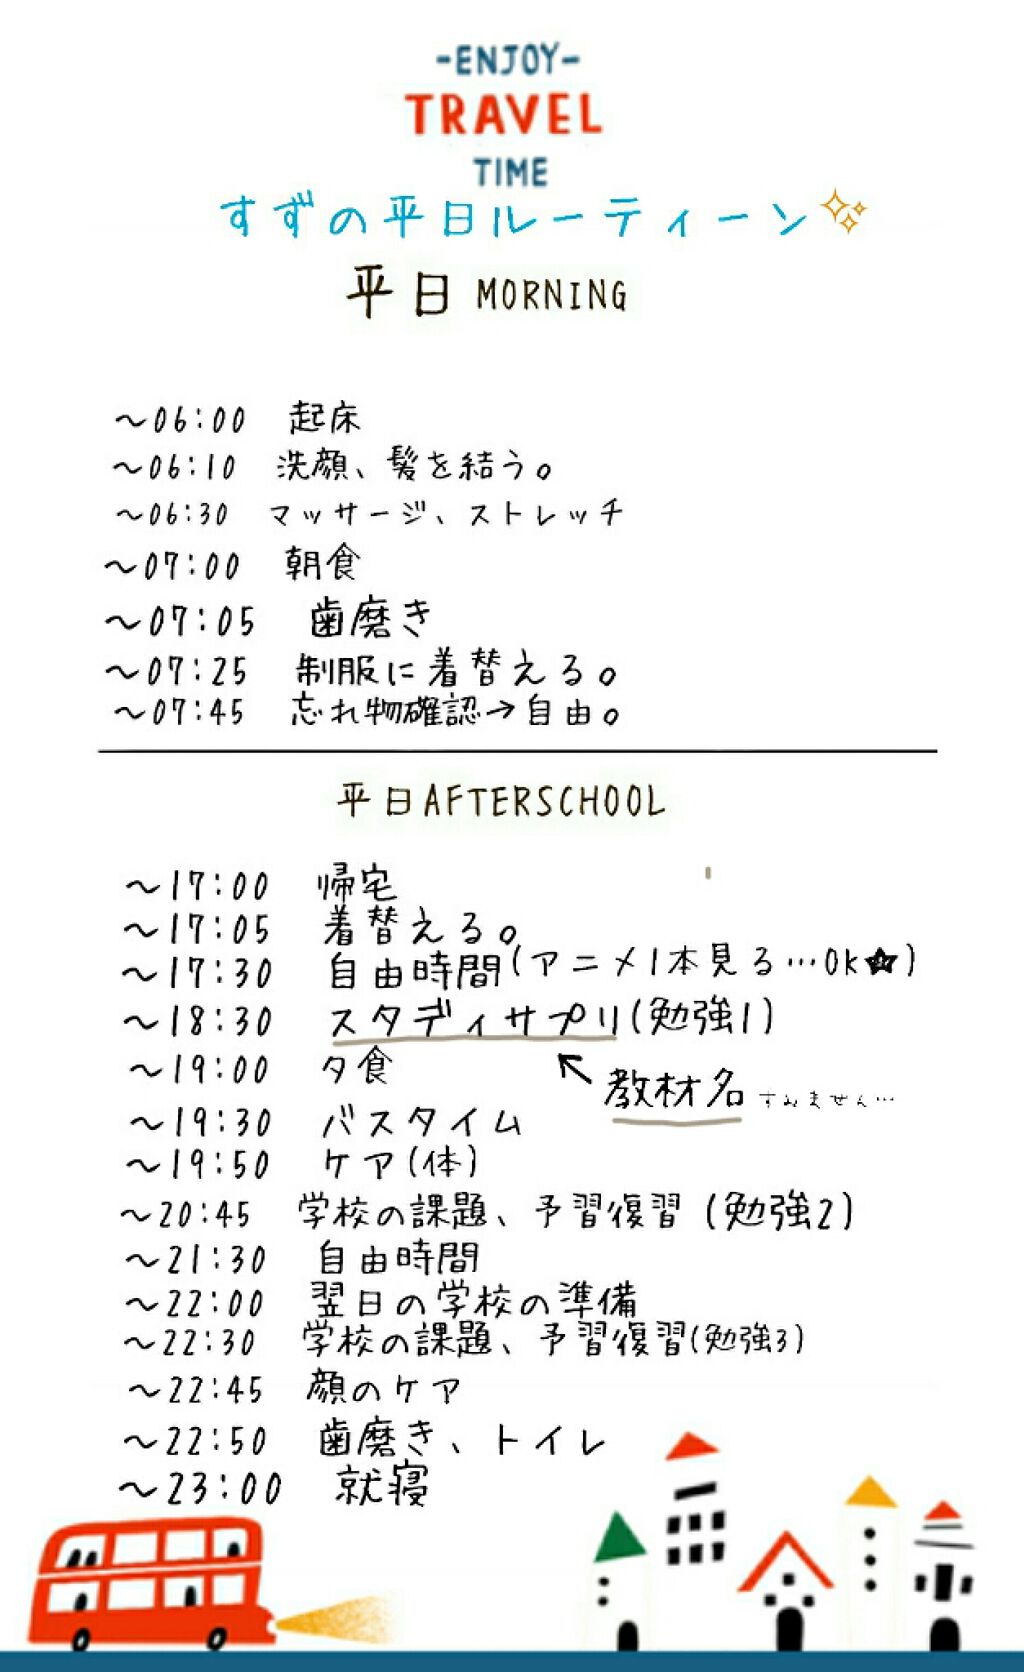 -ENJOY-
TRAVEL
TIME
すずの平日ルーティーン✨
平日 MORNING
〜06:00 起床
〜06:10 洗顔、髪を結う。
〜06:30 マッサージ、ストレッチ
〜07:00 朝食
〜07:05 歯磨き
〜07:25 制服に着替える。
〜07:45 忘れ物確認→自由。
平日AFTERSCHOOL
〜17:00 帰宅
〜17:05 着替える。
〜17:30 自由時間(アニメ1本見る…OK☆)
〜18:30 スタディサプリ(勉強1)
〜19:00 夕食
↖教材名 すみません…
〜19:30 バスタイム
〜19:50 ケア(体)
〜20:45 学校の課題、予習復習(勉強2)
〜21:30 自由時間
〜22:00 翌日の学校の準備
〜22:30 学校の課題、予習復習(勉強3)
〜22:45 顔のケア
〜22:50 歯磨き、トイレ
〜23:00 就寝